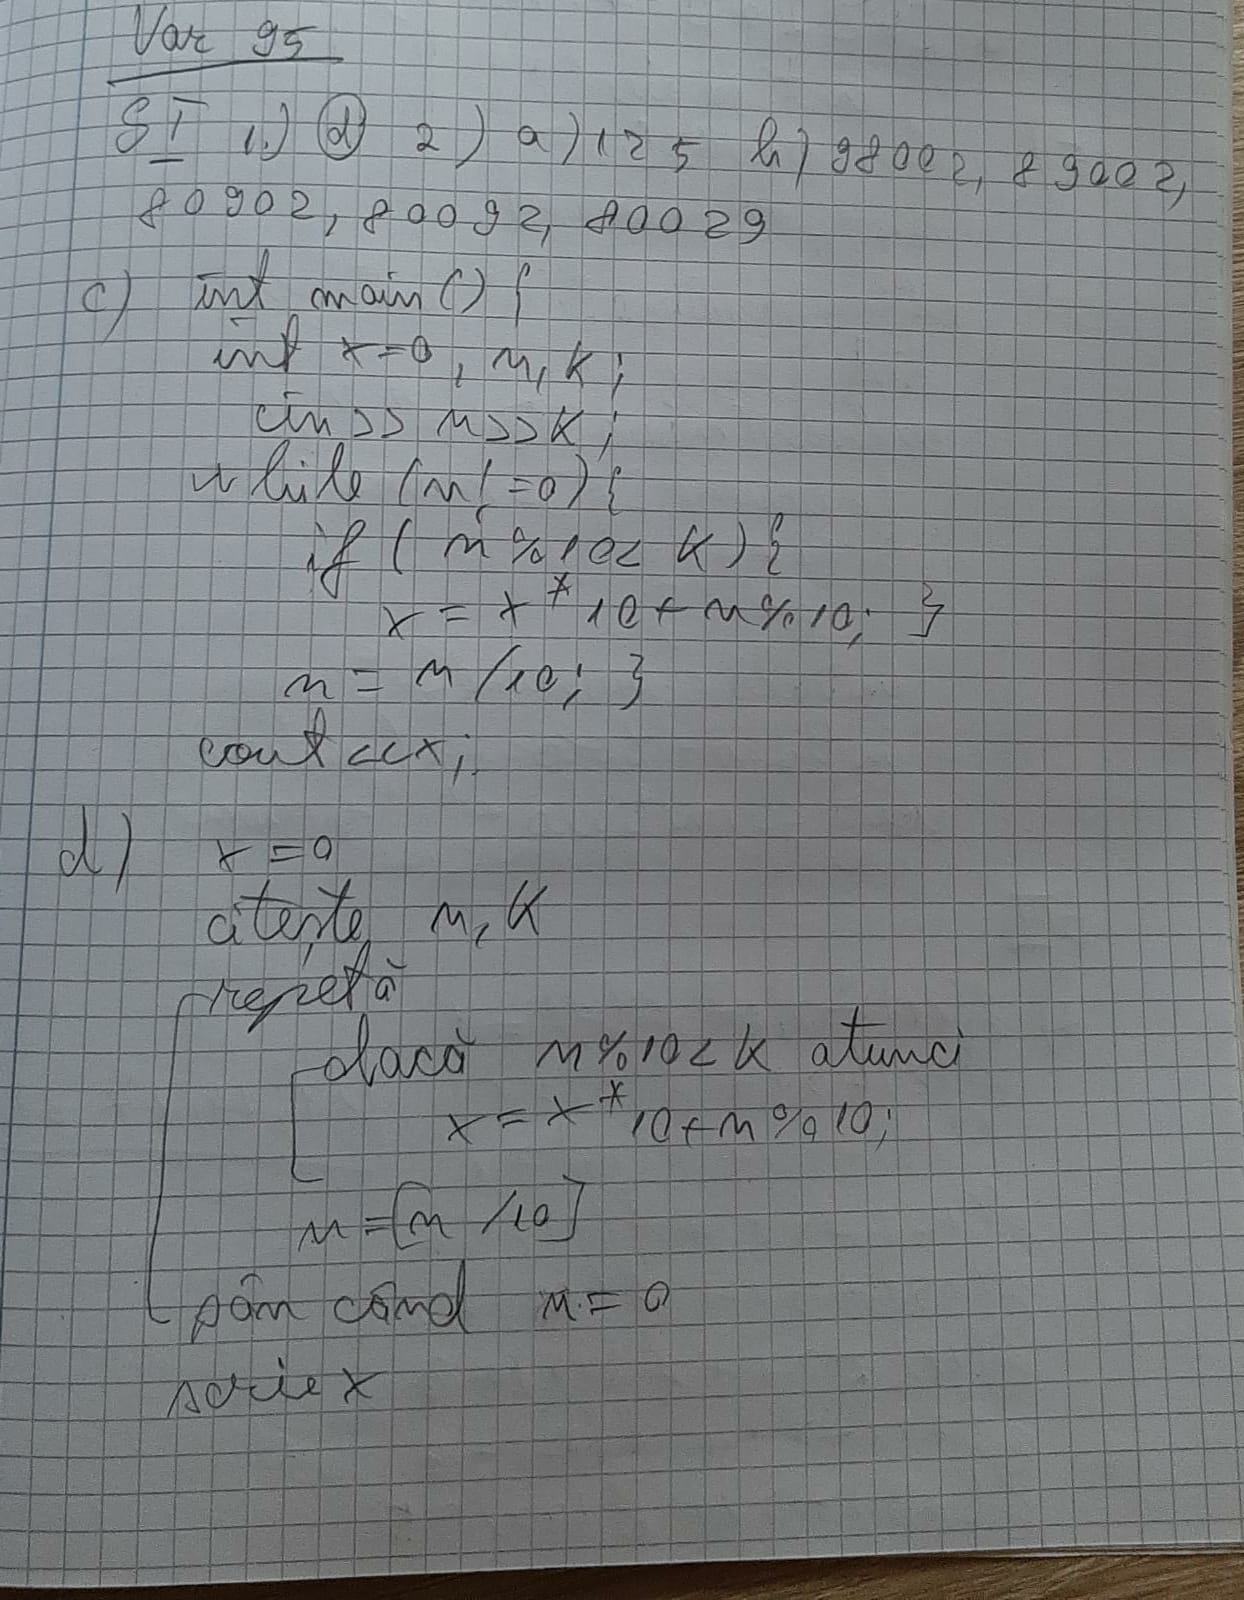 Var 95
SI 1.) d 2) a) 125 b) 98002, 89002,
80902, 80092, 80029
c) int main() {
int x=0, n, k;
cin>> n>>k;
while (n!=0) {
if ( n%10< k) {
x = x*10+n%10; }
n = n/10; }
cout<<x;
d) x=0
citește n, k
repetă
dacă n%10<k atunci
x = x*10+n%10;
n=[n/10]
pân când n=0
scrie x